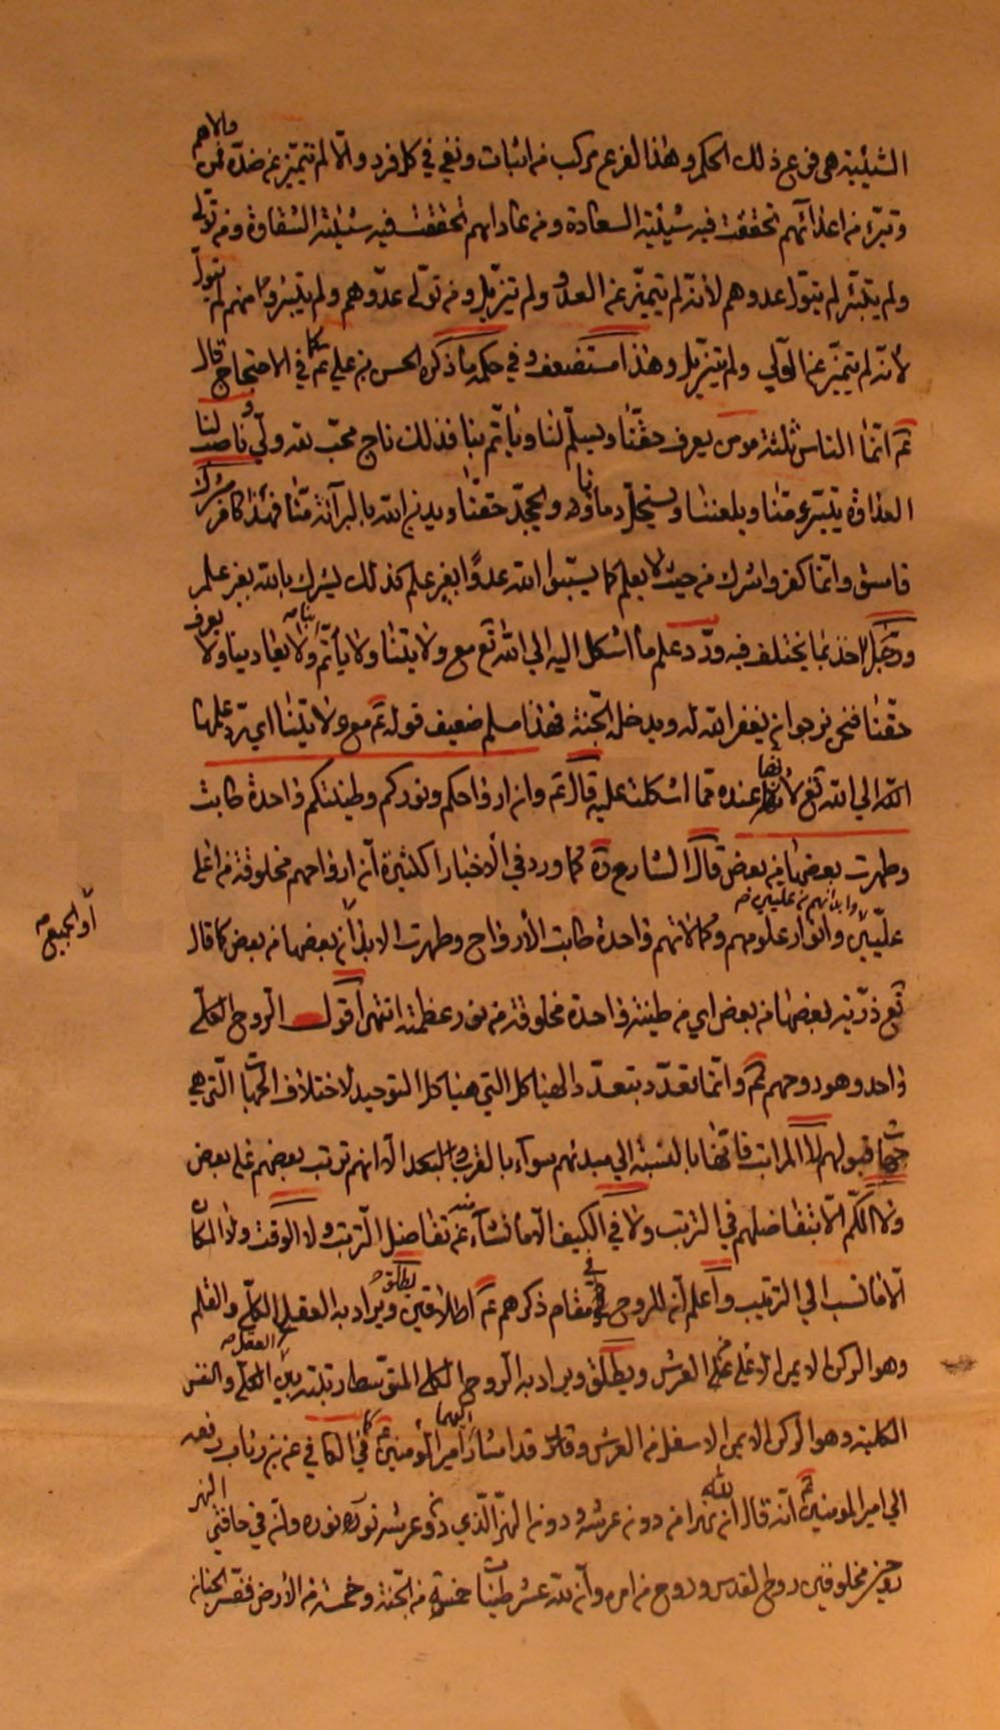 الشيئية هى فرع ذلك الحكم وهذا الفرع مركب من اثبات ونفي في كل فرد والا لم تتميز عن ضده فمن والاهم
وتبرء من اعدائهم تحققت فيه شيئية السعادة ومن عاداهم تحققت فيه شيئية الشقاوة ومن تولى
ولم يتبرء لم يتول عدوهم لأنه لم يتميز عن العدو ولم تيزيل ومن تولى عدوهم ولم يتبرء منهم لم يتول
لأنه لم يتميز عن الولي ولم يتزيل وهذا مستضعف وفي حكمه ما ذكره الحسن بن علي ع في الاحتجاج قال
ع انما الناس ثلثة مومن يعرف حقنا ويسلم لنا ويأتم بنا فذلك ناج محب لله ولي وناصب لنا
العداوة يتبرء منا ويلعننا ويستحل دماءنا ويجحد حقنا ويدين الله بالبرائة منا فهذا كافر مشرك
فاسق وانما كفر واشرك من حيث لا يعلم كما يسبوا الله عدوا بغير علم كذلك يشرك بالله بغير علم
ورجل اخذ بما يختلف فيه ورد علم ما اشكل اليه الى الله تع مع ولايتنا ولا يأتم بنا ولا يعادينا ولا يعرف
حقنا فنحن نرجوا ان يغفر الله له ويدخله الجنة فهذا مسلم ضعيف قوله ع مع ولايتنا اي يرد علمها
الى الله تع لانها عنده مما اشكلت عليه قال ع وان ارواحكم ونوركم وطينتكم واحدة طابت
وطهرت بعضها من بعض قال الشارح ره كما ورد في الاخبار الكثيرة ان ارواحهم مخلوقة من اعلى
عليين وابدانهم من عليين وانوار علومهم وكمالاتهم واحدة طابت الأرواح وطهرت الابدان بعضها من بعض كما قال
او الجميع
تع ذرية بعضها من بعض اي من طينة واحدة مخلوقة من نور عظمته انتهى اقول الروح الكلي
واحد وهو روحهم ع وانما تعدد بتعدد الهياكل التي هياكل التوحيد لاختلاف الجهات التي هي
جهات قبولهم لا المراتب فانها بالنسبة الى مبدئهم سواء بالقرب والبعد الا انهم ترتب بعضهم على بعض
ولا الكم الا بتفاضلهم في الرتب ولا في الكيف الا ما نشأ عن تفاضل الرتب ولا الوقت ولا المكان
الا ما نسب الى الترتيب واعلم ان للروح في مقام ذكرهم ع اطلاقين يطلق ويراد به العقل الكلي والقلم
وهو الركن الايمن الاعلى من العرش ويطلق ويراد به الروح الكلي المتوسط رتبته بين العقل الكلي والنفس
الكلية وهو الركن الايمن الاسفل من العرش وقد اشار اليهما امير المؤمنين ع كما في الكافي عن بن رئاب رفعه
الى امير المومنين ع انه قال ان لله نهرا من دون عرشه ودون النهر الذي دون عرشه نور نوره وان في حافتي النهر
روحين مخلوقين روح القدس وروح من امره وان لله عشر طينات خمسة من الجنة وخمسة من الأرض ففسر الجنان